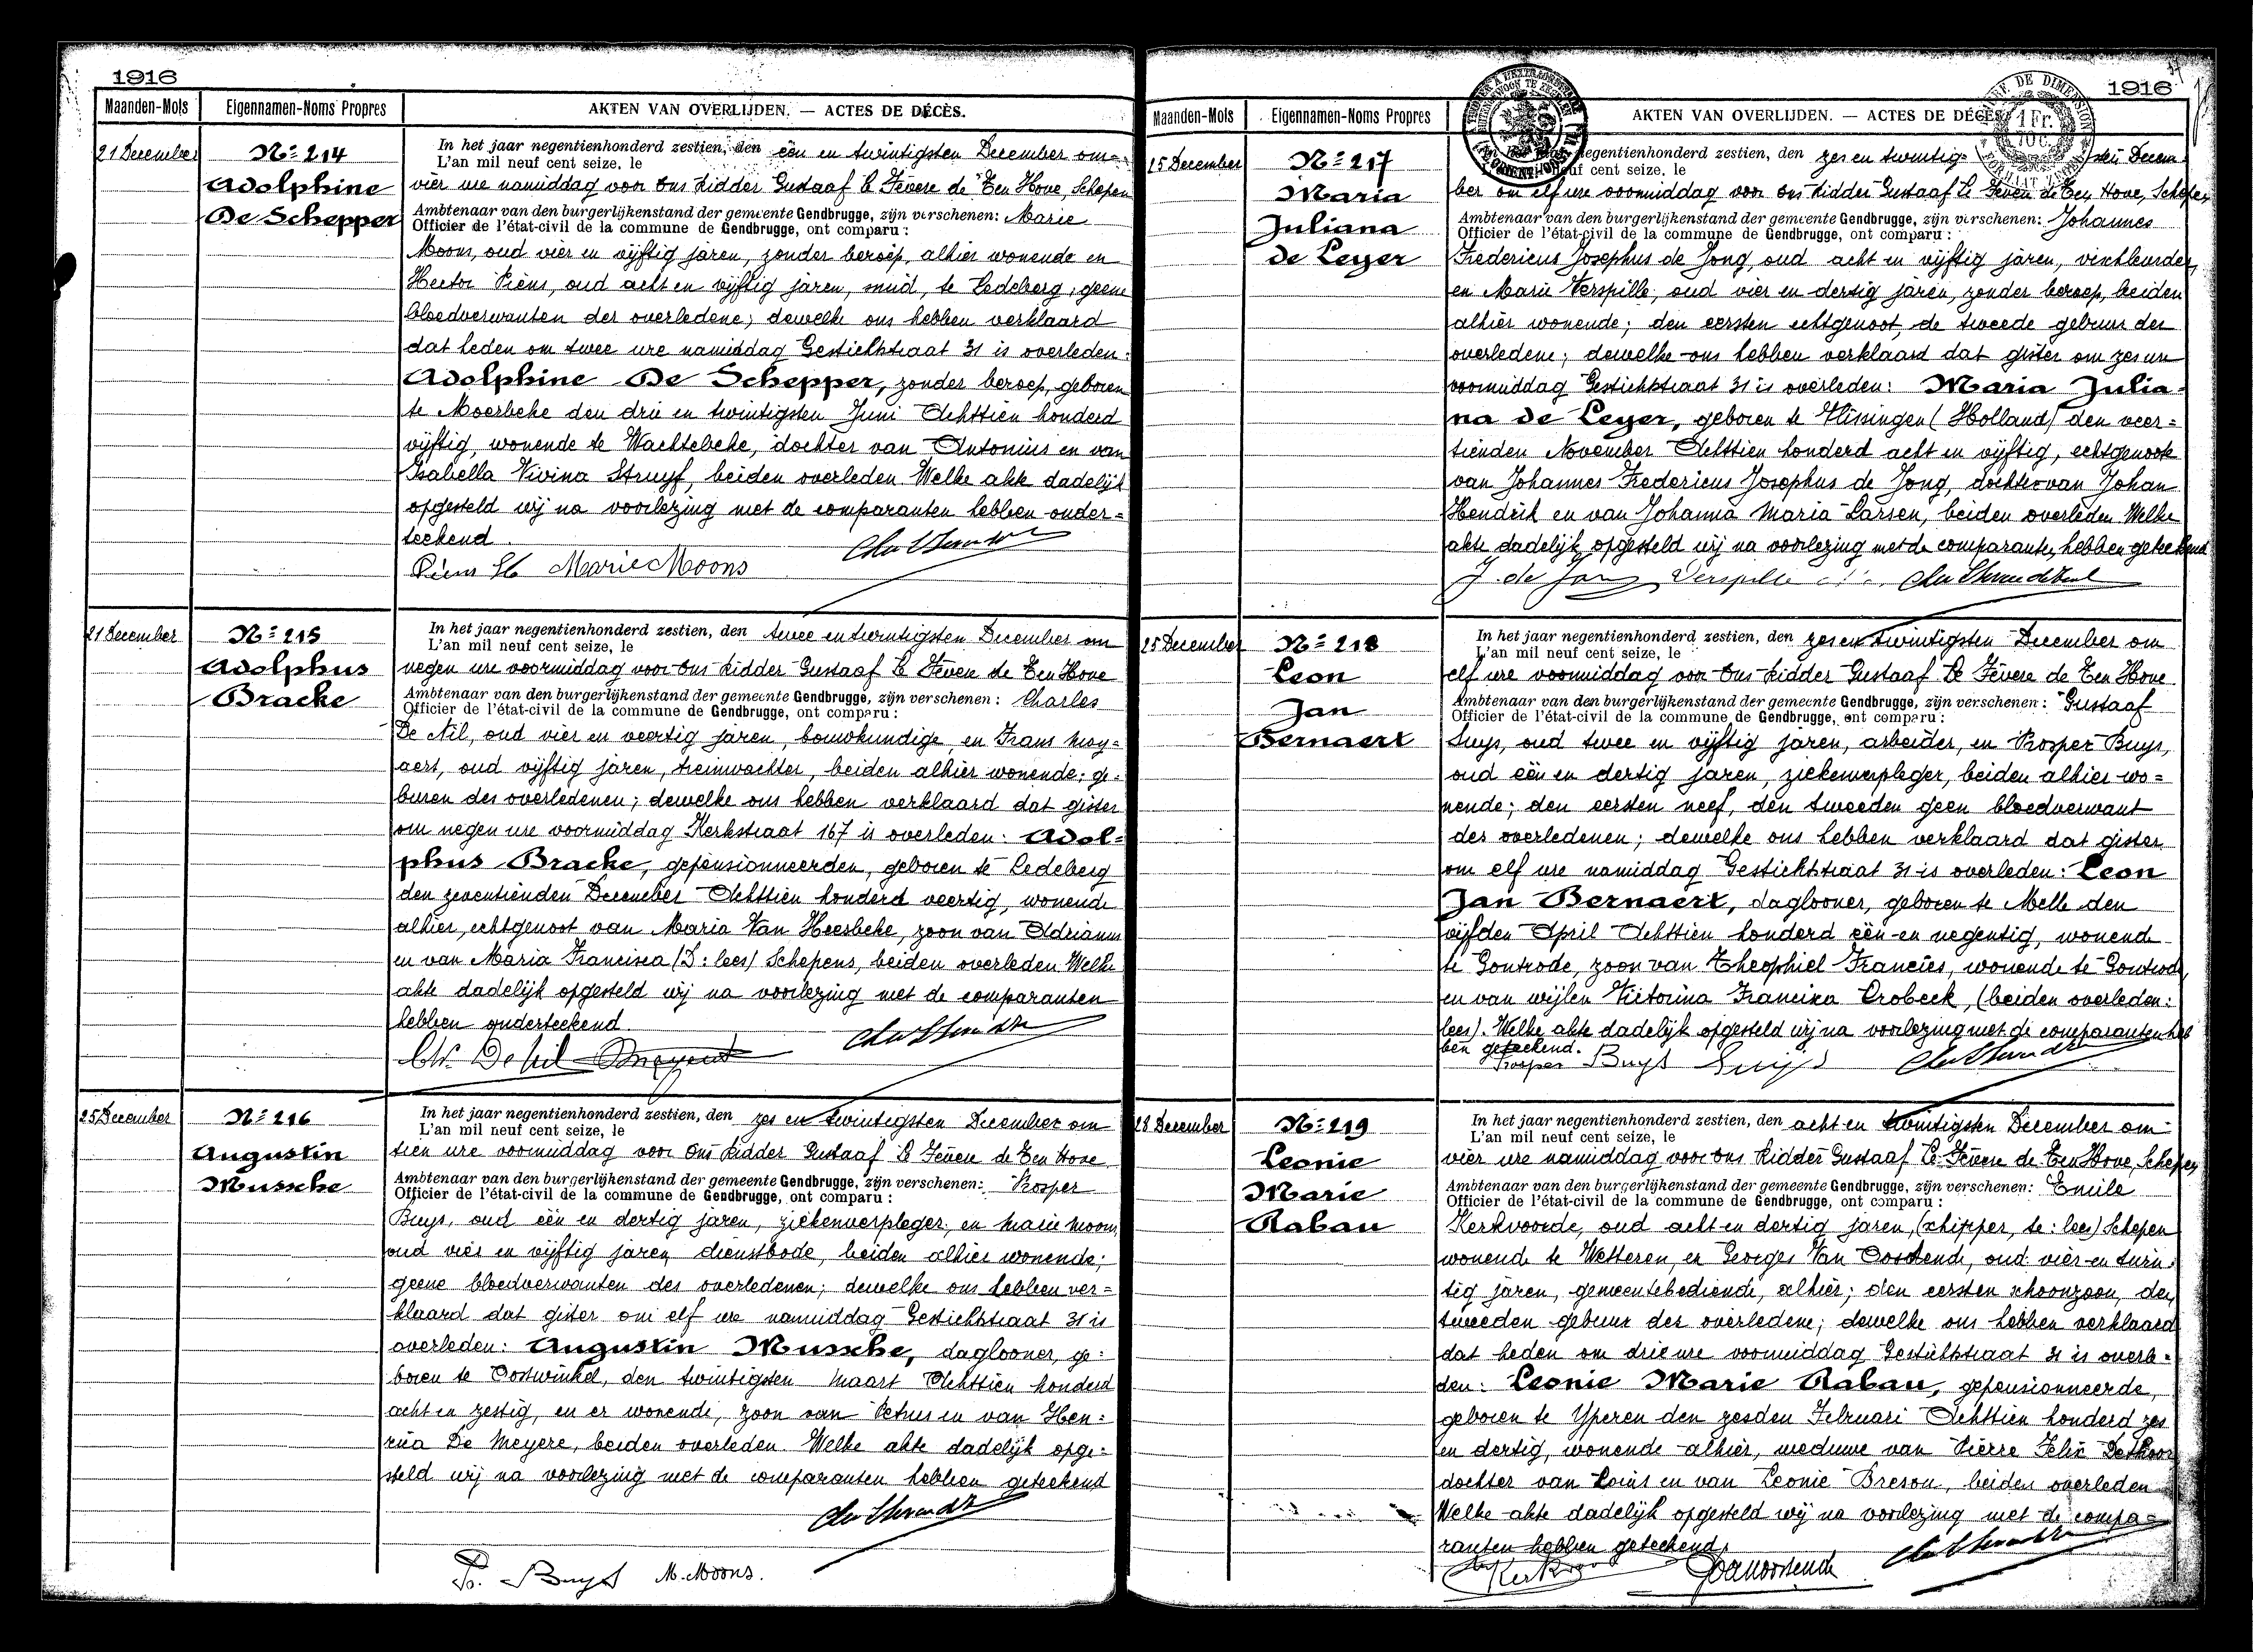 1916
Maanden-Mois
Eigennamen-Noms Propres
AKTEN VAN OVERLIJDEN. — ACTES DE DÉCÈS.
21 December
Nº 214
Adolphine
De Schepper
In het jaar negentienhonderd zestien, den één en twintigsten December om
L'an mil neuf cent seize, le
vier ure namiddag voor Ons Ridder Gustaaf Le Fèvere de Ten Hove, Schepen
Ambtenaar van den burgerlijkenstand der gemeente Gendbrugge, zijn verschenen: Marie
Officier de l'état-civil de la commune de Gendbrugge, ont comparu :
Moons, oud vier en vijftig jaren, zonder beroep, alhier wonende en
Hector Piens, oud acht en vijftig jaren, smid, te Ledeberg, geene
bloedverwanten der overledene; dewelke ons hebben verklaard
dat heden om twee ure namiddag Gestichtstraat 31 is overleden:
Adolphine De Schepper, zonder beroep, geboren
te Moerbeke den drie en twintigsten Juni Achttien honderd
vijftig, wonende te Wachtebeke, dochter van Antonius en van
Isabella Vivina Struyf, beiden overleden Welke akte dadelijk
opgesteld wij na voorlezing met de comparanten hebben onder=
teekend.
Piens H Marie Moons
21 December
Nº 215
Adolphus
Bracke
In het jaar negentienhonderd zestien, den twee en twintigsten December om
L'an mil neuf cent seize, le
negen ure voormiddag voor Ons Ridder Gustaaf Le Fèvere de Ten Hove
Ambtenaar van den burgerlijkenstand der gemeente Gendbrugge, zijn verschenen : Charles
Officier de l'état-civil de la commune de Gendbrugge, ont comparu :
De Nil, oud vier en veertig jaren, bouwkundige, en Frans Moy=
aert, oud vijftig jaren, treinwachter, beiden alhier wonende; ge=
buren des overledenen; dewelke ons hebben verklaard dat gister
om negen ure voormiddag Kerkstraat 167 is overleden: Adol=
phus Bracke, gepensionneerden, geboren te Ledeberg
den zeventienden December Achttien honderd veertig, wonende
alhier, echtgenoot van Maria Van Heesbeke, zoon van Adrianus
en van Maria Francisca (S: lees) Schepens, beiden overleden Welke
akte dadelijk opgesteld wij na voorlezing met de comparanten
hebben onderteekend.
Ch. De Nil
25 December
Nº 216
Augustin
Mussche
In het jaar negentienhonderd zestien, den zes en twintigsten December om
L'an mil neuf cent seize, le
tien ure voormiddag voor Ons Ridder Gustaaf Le Fèvere de Ten Hove
Ambtenaar van den burgerlijkenstand der gemeente Gendbrugge, zijn verschenen: Prosper
Officier de l'état-civil de la commune de Gendbrugge, ont comparu :
Buys, oud één en dertig jaren, ziekenverpleger, en Marie Moons,
oud vier en vijftig jaren, dienstbode, beiden alhier wonende;
geene bloedverwanten des overledenen; dewelke ons hebben ver=
klaard dat gister om elf ure namiddag Gestichtstraat 31 is
overleden: Augustin Mussche, daglooner, ge=
boren te Oostwinkel, den twintigsten Maart Achttien honderd
acht en zestig, en er wonende, zoon van Petrus en van Hen=
rica De Meyere, beiden overleden. Welke akte dadelijk opge=
steld wij na voorlezing met de comparanten hebben geteekend
Pr. Buys M. Moons.
1916
Maanden-Mois
Eigennamen-Noms Propres
AKTEN VAN OVERLIJDEN. — ACTES DE DÉCÈS.
25 December
Nº 217
Maria
Juliana
de Leyer
In het jaar negentienhonderd zestien, den zes en twintig= sten Decem
L'an mil neuf cent seize, le
ber om elf ure voormiddag voor Ons Ridder Gustaaf Le Fèvere de Ten Hove, Schepen
Ambtenaar van den burgerlijkenstand der gemeente Gendbrugge, zijn verschenen: Johannes
Officier de l'état-civil de la commune de Gendbrugge, ont comparu :
Fredericus Josephus de Jong, oud acht en vijftig jaren,
en Marie Verspille, oud vier en dertig jaren, zonder beroep, beiden
alhier wonende; den eersten echtgenoot, de tweede gebuur der
overledene; dewelke ons hebben verklaard dat gister om zes ure
voormiddag Gestichtstraat 31 is overleden: Maria Julia=
na de Leyer, geboren te Vlissingen (Holland) den veer=
tienden November Achttien honderd acht en vijftig, echtgenoote
van Johannes Fredericus Josephus de Jong, dochter van Johan
Hendrik en van Johanna Maria Larsen, beiden overleden Welke
akte dadelijk opgesteld wij na voorlezing met de comparanten hebben geteekend
J. de Jong Verspille
25 December
Nº 218
Leon
Jan
Bernaert
In het jaar negentienhonderd zestien, den zes en twintigsten December om
L'an mil neuf cent seize, le
elf ure voormiddag voor Ons Ridder Gustaaf Le Fèvere de Ten Hove
Ambtenaar van den burgerlijkenstand der gemeente Gendbrugge, zijn verschenen : Gustaaf
Officier de l'état-civil de la commune de Gendbrugge, ont comparu :
Suys, oud twee en vijftig jaren, arbeider, en Prosper Buys,
oud één en dertig jaren, ziekenverpleger, beiden alhier wo=
nende; den eersten neef, den tweeden geen bloedverwant
des overledenen; dewelke ons hebben verklaard dat gister
om elf ure namiddag Gestichtstraat 31 is overleden: Leon
Jan Bernaert, daglooner, geboren te Melle den
vijfden April Achttien honderd één en negentig, wonende
te Gontrode, zoon van Theophiel Francies, wonende te Gontrode,
en van wijlen Victorina Francisca Crobeck, (beiden overleden:
lees). Welke akte dadelijk opgesteld wij na voorlezing met de comparanten heb
ben geteekend.
Prosper Buys Suys
28 December
Nº 219
Leonie
Marie
Rabau
In het jaar negentienhonderd zestien, den acht en twintigsten December om
L'an mil neuf cent seize, le
vier ure namiddag voor Ons Ridder Gustaaf Le Fèvere de Ten Hove, Schepen
Ambtenaar van den burgerlijkenstand der gemeente Gendbrugge, zijn verschenen: Emile
Officier de l'état-civil de la commune de Gendbrugge, ont comparu :
Kerkvoorde, oud acht en dertig jaren, (schipper, te: lees) Schepen
wonende te Wetteren, en Georges Van Oostende, oud vier en twin=
tig jaren, gemeentebediende, alhier; den eersten schoonzoon, den
tweeden gebuur der overledene; dewelke ons hebben verklaard
dat heden om drie ure voormiddag Gestichtstraat 31 is overle=
den: Leonie Marie Rabau, gepensionneerde,
geboren te Yperen den zesden Februari Achttien honderd zes
en dertig, wonende alhier, weduwe van Pierre Felix
dochter van Louis en van Leonie Breson, beiden overleden
Welke akte dadelijk opgesteld wij na voorlezing met de compa=
ranten hebben geteekend.
GVanoostende